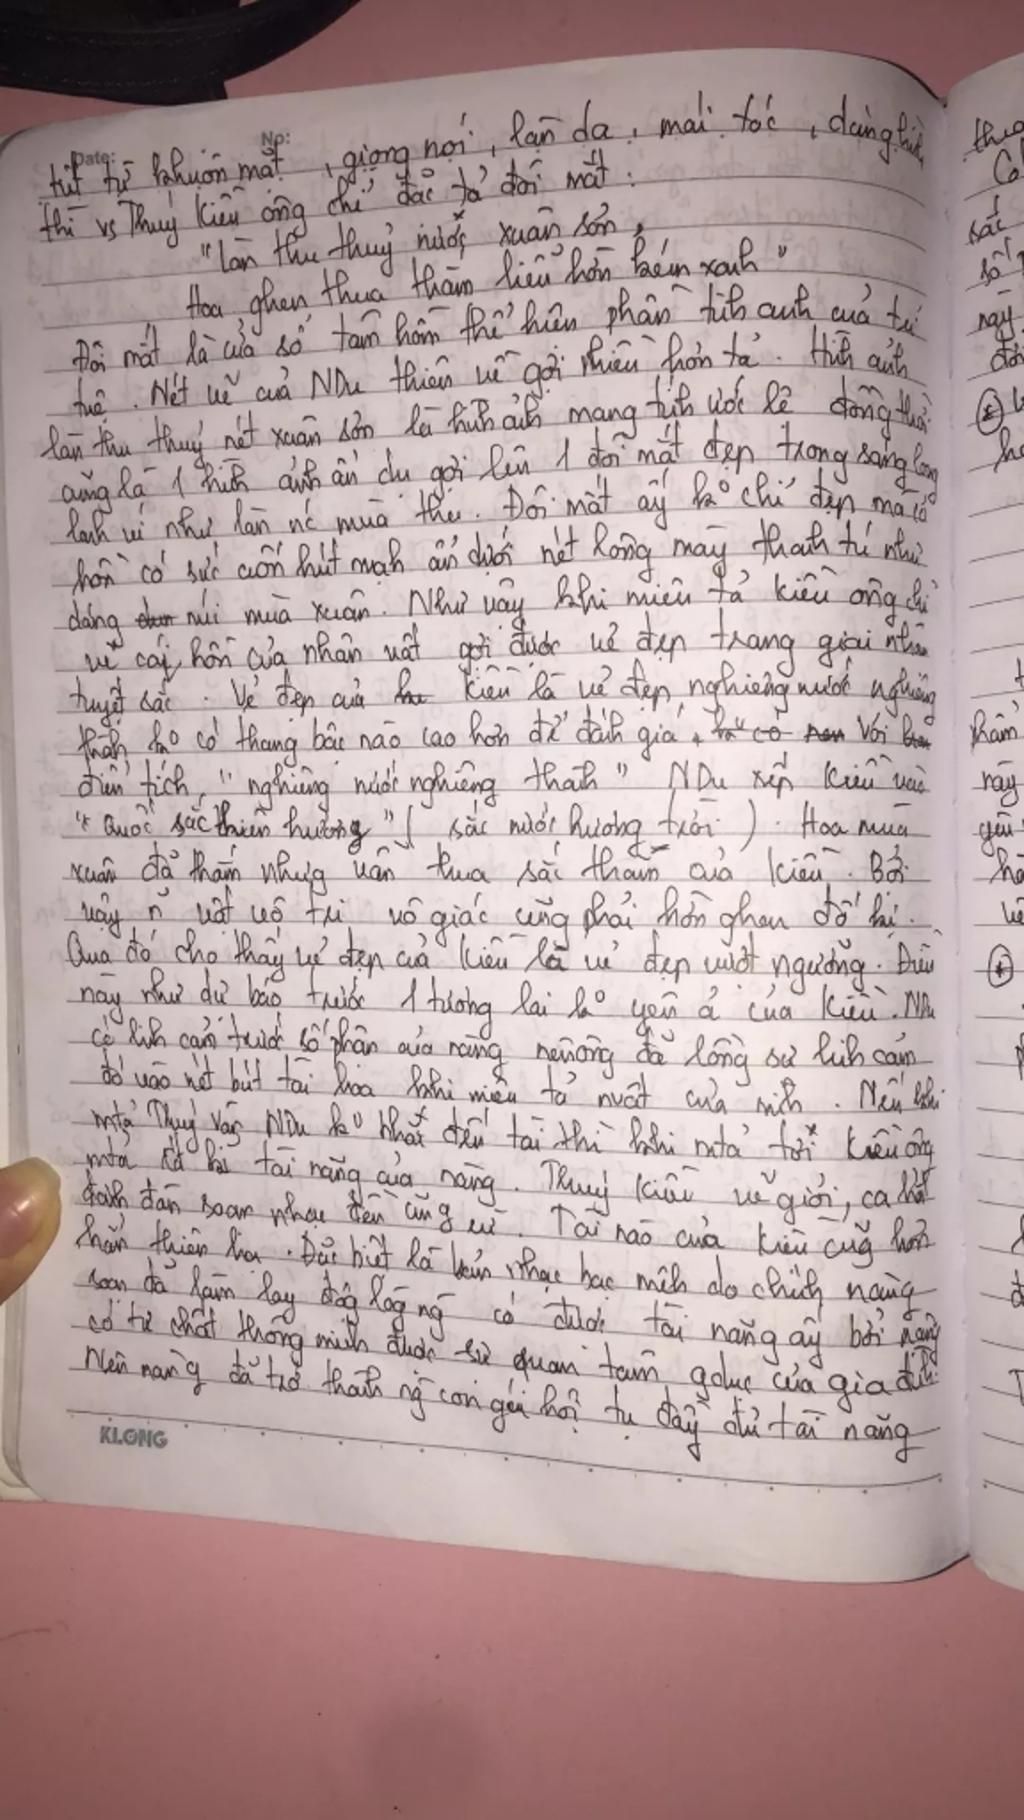 Date: No:
tiết từ khuôn mặt, giọng nói, làn da, mái tóc, dáng hình
thì vs Thuý Kiều ông chỉ đặc tả đôi mắt:
"Làn thu thuỷ nước xuân sơn,
Hoa ghen thua thắm liễu hờn kém xanh"
Đôi mắt là cửa sổ tâm hồn thể hiện phần tinh anh của trí
tuệ. Nét vẽ của NDu thiên về gợi nhiều hơn tả. Hình ảnh
làn thu thuỷ nét xuân sơn là hình ảnh mang tính ước lệ đồng thời
cũng là 1 hình ảnh ẩn dụ gợi lên 1 đôi mắt đẹp trong sáng long
lanh ví như làn nc mùa thu. Đôi mắt ấy ko chỉ đẹp mà có
hồn có sức cuốn hút mạnh ẩn dưới nét lông mày thanh tú như
dáng núi mùa xuân. Như vậy khi miêu tả Kiều ông chỉ
vẽ cái hồn của nhân vật gợi được vẻ đẹp trang giai nhân
tuyệt sắc. Vẻ đẹp của Kiều là vẻ đẹp nghiêng nước nghiêng
thành ko có thang bậc nào cao hơn để đánh giá, Với
điển tích, "nghiêng nước nghiêng thành" NDu xếp Kiều vào
"Quốc sắc thiên hương" (sắc nước hương trời). Hoa mùa
xuân đã thắm nhưng vẫn thua sắc thắm của Kiều. Bởi
vậy n vật vô tri vô giác cũng phải hờn ghen đố kị.
Qua đó cho thấy vẻ đẹp của Kiều là vẻ đẹp vượt ngưỡng. Điều
này như dự báo trước 1 tương lai ko yên ả của Kiều. NDu
có linh cảm trước số phận của nàng nên ông đã lồng sự linh cảm
đó vào nét bút tài hoa khi miêu tả nvật của mình. Nếu khi
mtả Thuý Vân NDu ko nhắc đến tài thì khi mtả tới Kiều ông
mtả cả tài năng của nàng. Thuý Kiều vẽ giỏi, ca hát
đánh đàn soạn nhạc đều cũng cừ. Tài nào của Kiều cũg hơn
hẳn thiên hạ. Đặc biệt là bản nhạc bạc mệnh do chính nàng
soạn đã làm lay độg lòg ng có được tài năng ấy bởi nàng
có tư chất thông minh được sự quan tâm gdục của gia đình.
Nên nàng đã trở thành ng con gái hội tụ đầy đủ tài năng
KLONG